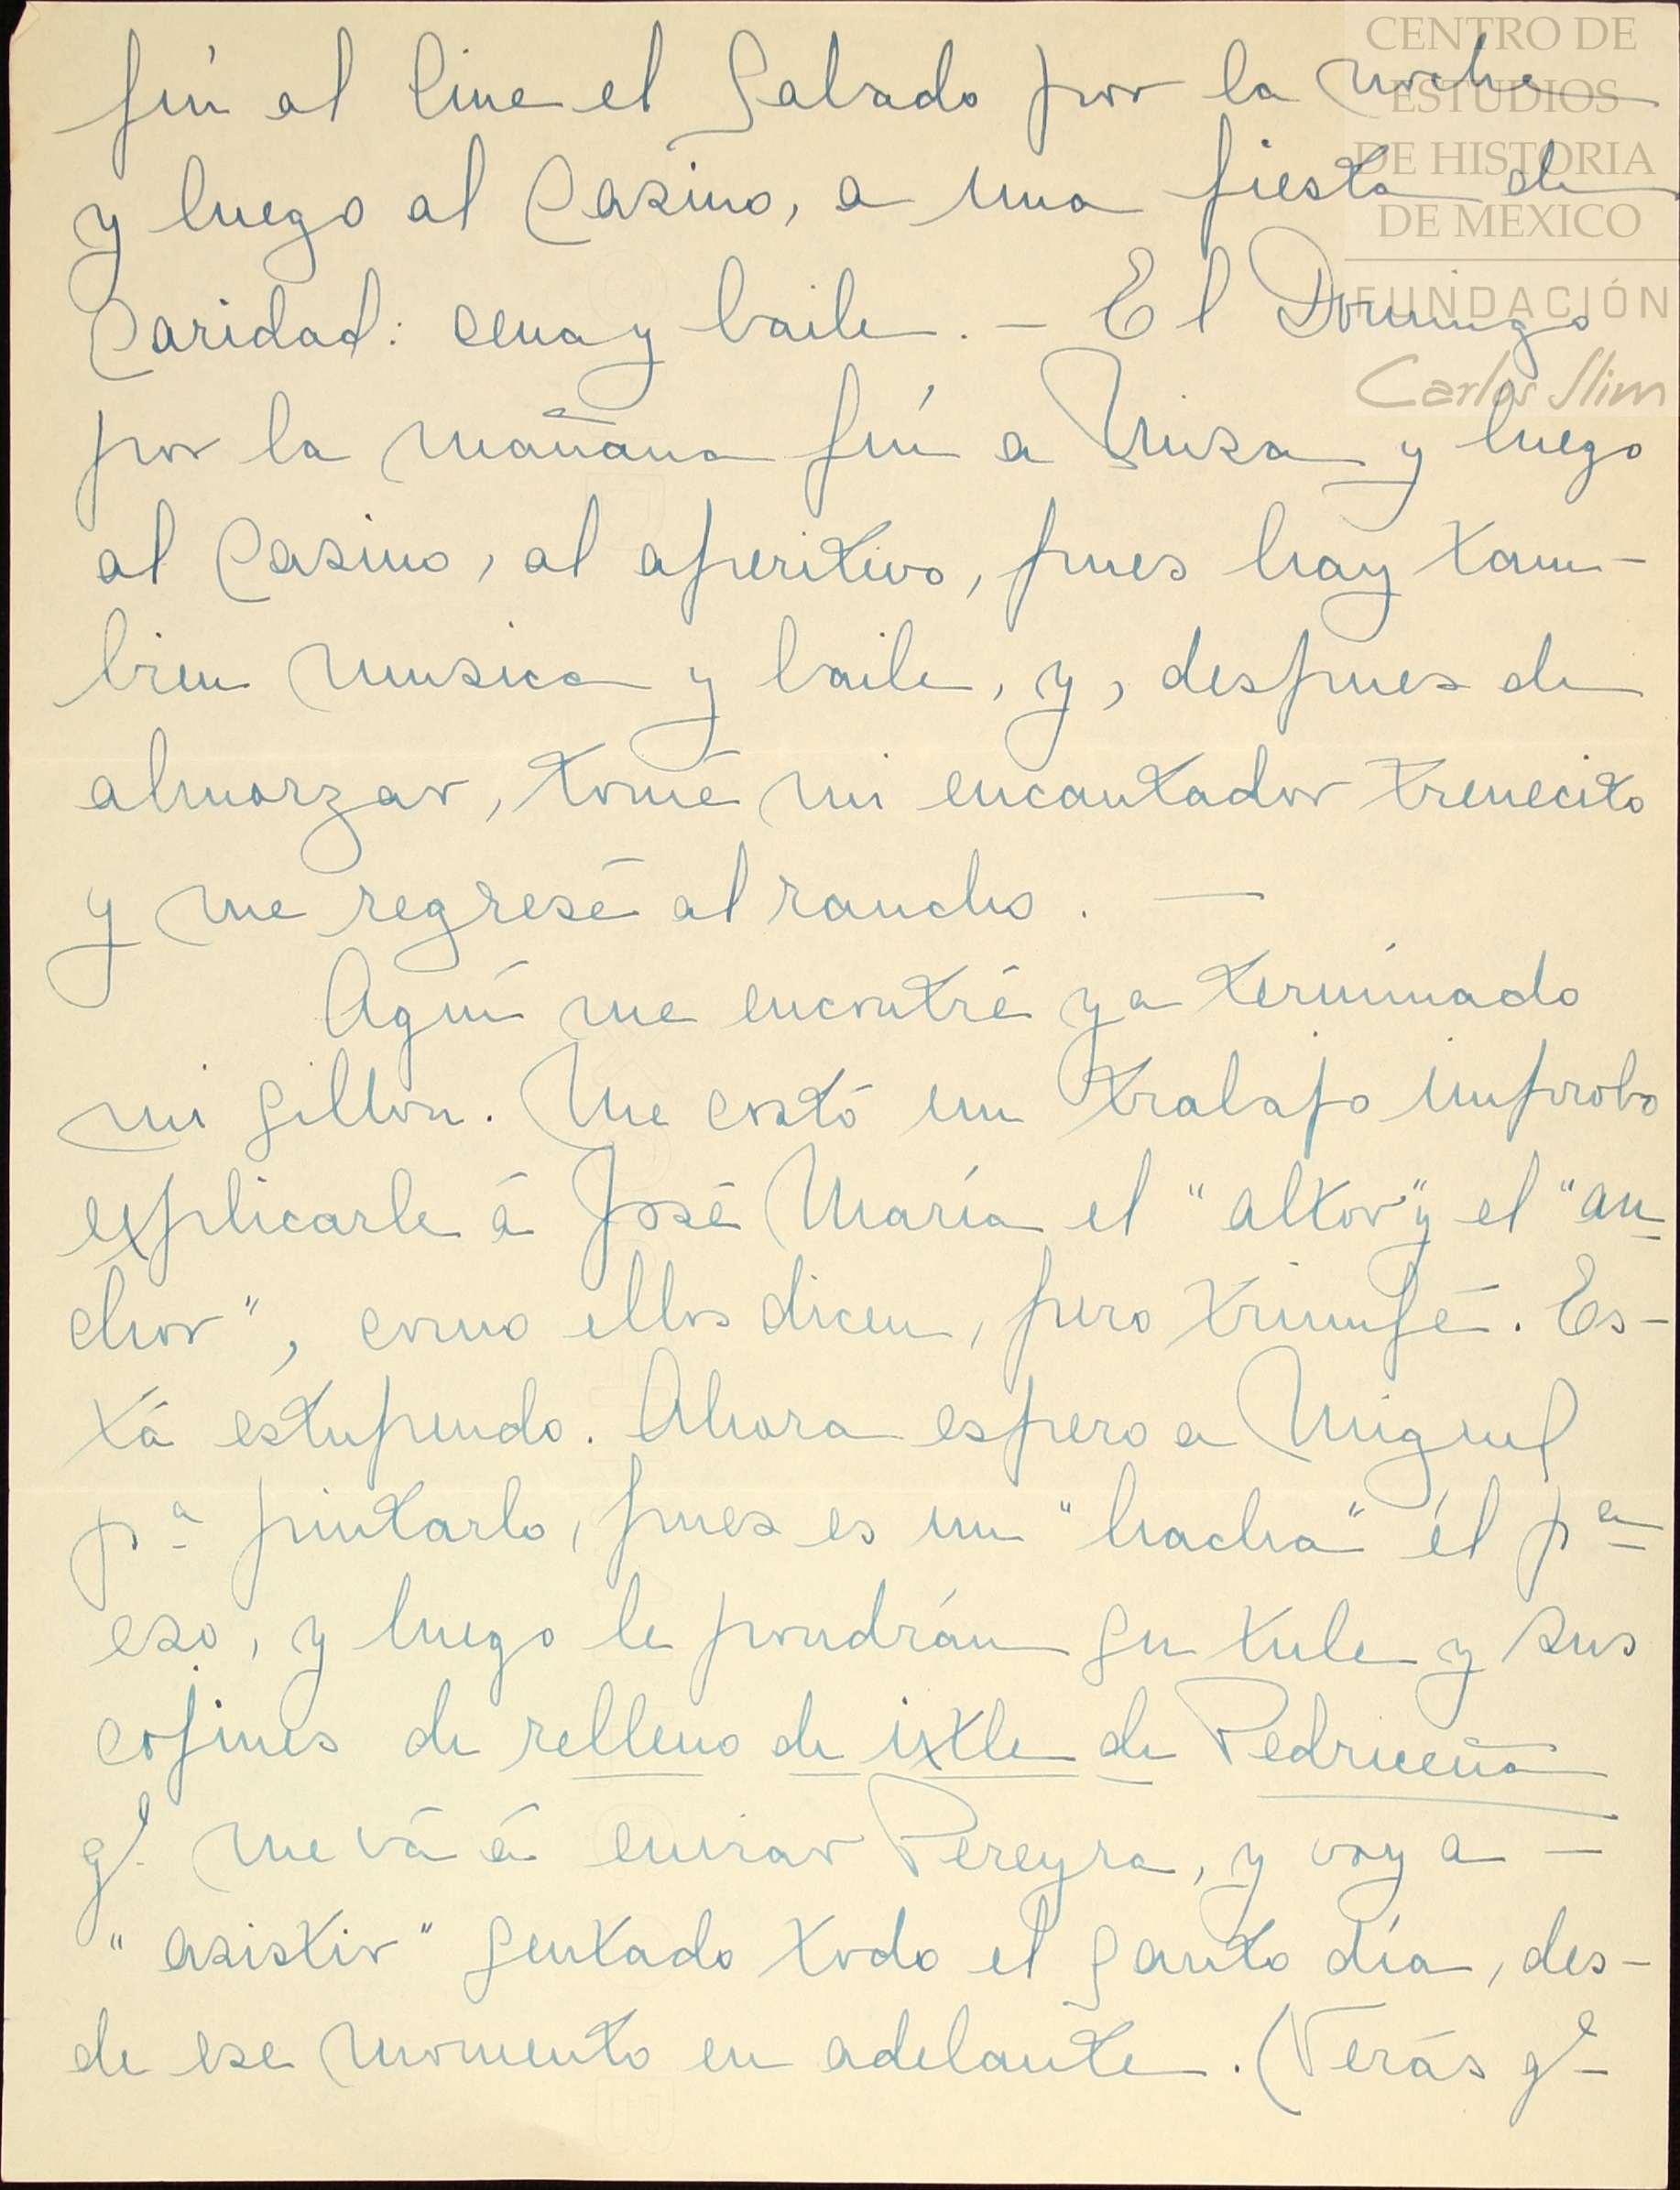 CENTRO DE
ESTUDIOS
DE HISTORIA
DE MEXICO
FUNDACIÓN
Carlos Slim
fuí al Cine el Sabado por la noche
y luego al Casino, a una fiesta de
Caridad: cena y baile. - El Domingo
por la mañana fuí a Misa y luego
al Casino, al aperitivo, pues hay tam-
bien musica y baile, y, despues de
almorzar, tomé mi encantador trenecito
y me regresé al rancho. —
Aquí me encontré ya terminado
mi sillon. Me costó un trabajo improbo
explicarle á José María el "altor" y el "an
chor", como ellos dicen, pero triunfé. Es-
tá estupendo. Ahora espero a Miguel
pª pintarlo, pues es un "hacha" él pª
eso, y luego le pondrán su tule y sus
cojines de relleno de ixtle de Pedriceña
qe me vá á enviar Pereyra, y voy a —
"asistir" sentado todo el santo día, des-
de ese momento en adelante. (Verás qe